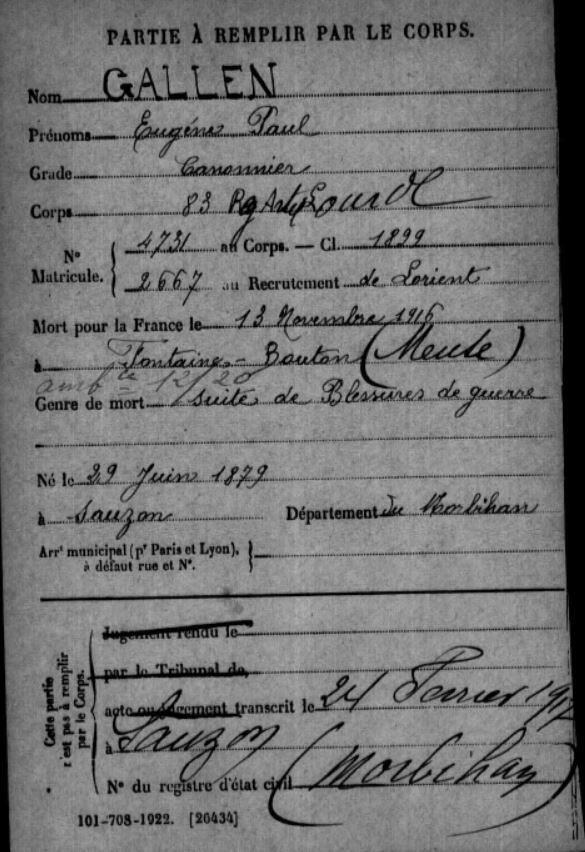 PARTIE À REMPLIR PAR LE CORPS.
Nom GALLEN
Prénoms Eugène Paul
Grade Canonnier
Corps 83 Rg Art Lourde
N° Matricule. { 4731 au Corps. — Cl. 1899
2667 au Recrutement de Lorient
Mort pour la France le 13 Novembre 1916
à Fontaine-Bouton (Meuse)
amb 12/20
Genre de mort suite de Blessures de guerre
Né le 29 Juin 1879
à Sauzon Département du Morbihan
Arrt municipal (pr Paris et Lyon), à défaut rue et N°.
Cette partie n'est pas à remplir par le Corps.
Jugement rendu le
par le Tribunal de
acte ou jugement transcrit le 24 Fevrier 1917
à Sauzon (Morbihan)
N° du registre d'état civil
101-708-1922. [26434]